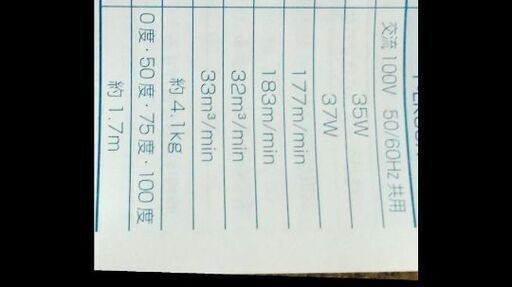 交流 100V 50/60Hz 共用
35W
37W
177m/min
183m/min
32m³/min
33m³/min
約 4.1kg
0度・50度・75度・100度
約 1.7m